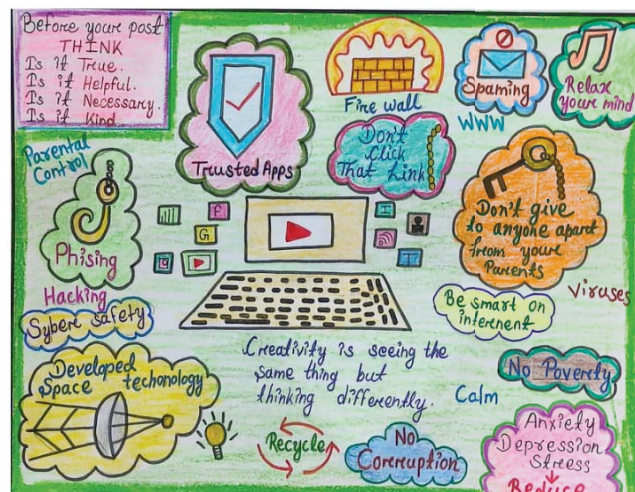 Before your post
THINK
Is it True.
Is it Helpful.
Is it Necessary.
Is it Kind
Trusted Apps
Fire wall
Spaming
Relax
your mind
WWW
Don't
Click
That Link
Parental
Control
Phising
Don't give
to anyone apart
from your
Parents
Hacking
Viruses
Sybere safety
Be smart on
internent
Developed
Space techonology
Creativity is seeing the
same thing but
thinking differently.
Calm
No Poverty
Recycle
No
Corcruption
Anxiety
Depression
Stress
Reduce